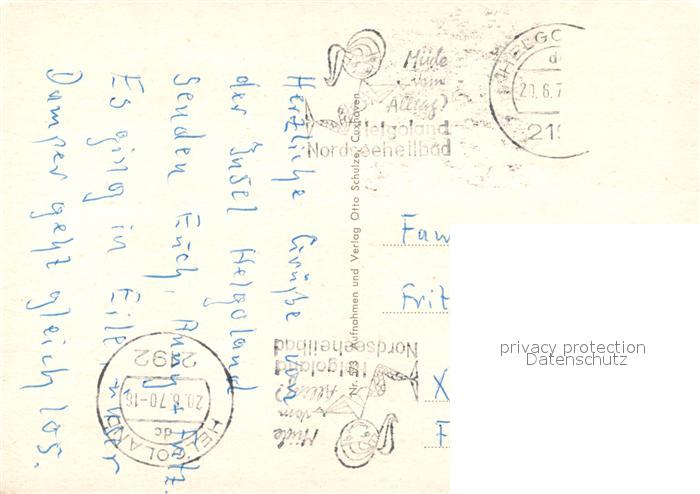 Herzliche Grüße von
der Insel Helgoland
senden Euch, Anny + Fritz.
Es ging in Eile, unser
Dampfer geht gleich los.
Müde
vom
Alltag?
Helgoland
Nordseeheilbad
HELGO
dc
20.6.7
219
Nr. 573 Aufnahmen und Verlag Otto Schulze, Cuxhaven
Fam
Frit
X
F
privacy protection
Datenschutz
Müde
vom
Alltag?
Helgoland
Nordseeheilbad
2192
20.6.70-16
dc
HELGOLAND